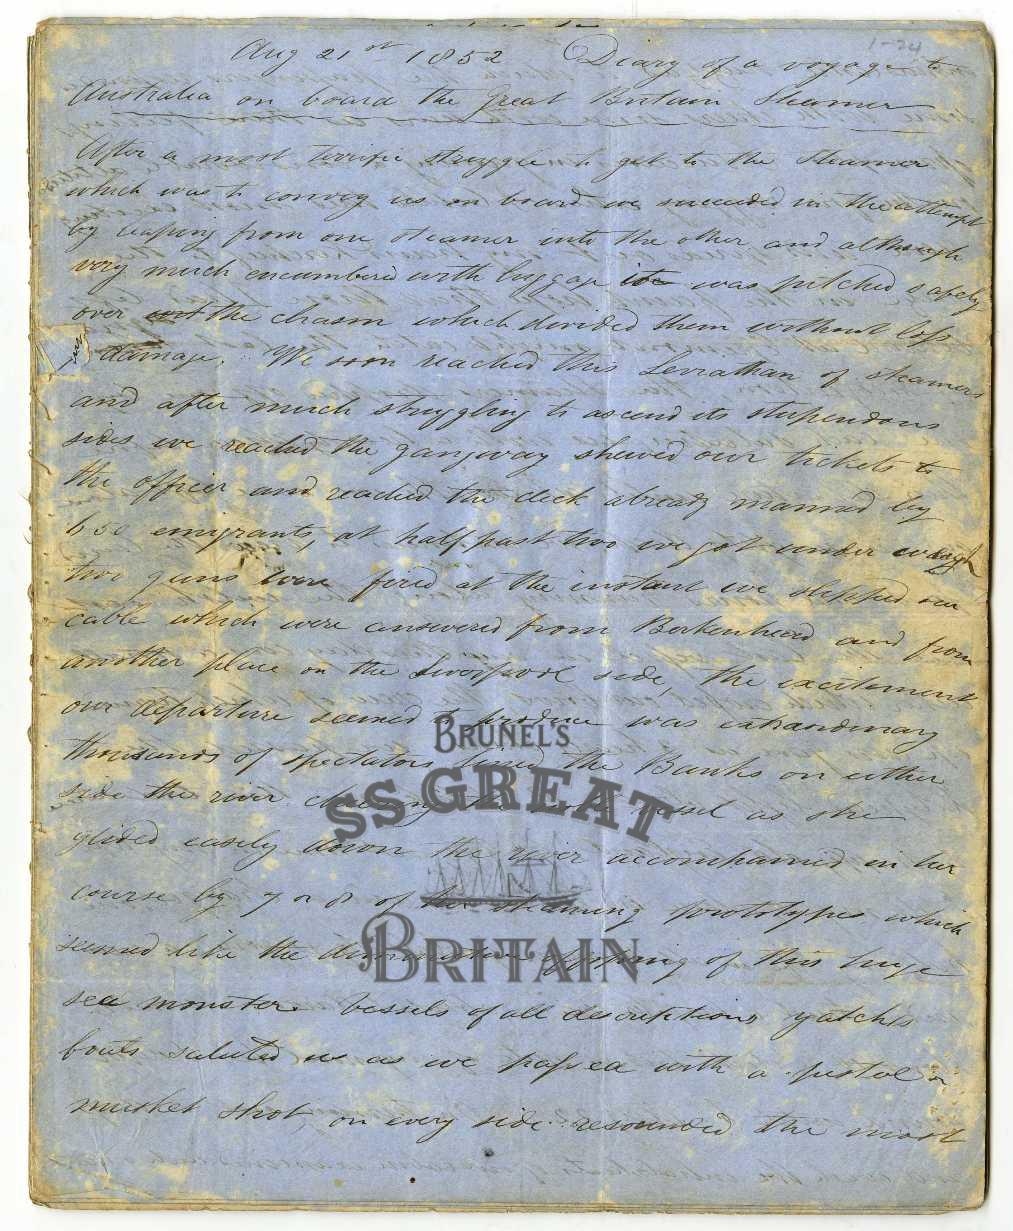 1-24
Aug 21st 1852 Diary of a voyage to
Australia on board the Great Britain Steamer
After a most terrific struggle to get to the Steamer
which was to convey us on board we succeeded in the attempt
by leaping from one steamer into the other and although
very much encumbered with luggage was pitched safely
over the chasm which divided them without loss
or damage. We soon reached this Leviathan of steamers
and after much struggling to ascend its stupendous
sides we reached the gangway shewed our tickets to
the officer and reached the deck already manned by
650 emigrants, at half past two we got under weigh
two guns were fired at the instant we slipped our
cable which were answered from Berkenhead and from
another place on the Liverpool side, the excitement
our departure seemed to produce was extraordinary
thousands of spectators lined the Banks on either
side the river cheering the vessel as she
glided easely down the river accompanied in her
course by 7 or 8 of her steaming prototypes which
seemed like the diminutive offspring of this huge
sea monster. Vessels of all descriptions yatchs
boats saluted us as we passed with a pistol or
musket shot, on every side resounded the most
BRUNEL'S
SS GREAT
BRITAIN